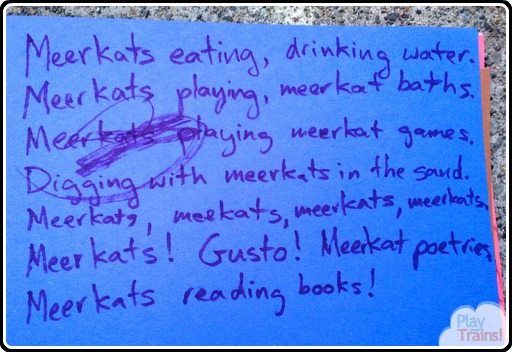 Meerkats eating, drinking water.
Meerkats playing, meerkat baths.
Meerkats playing meerkat games.
Digging with meerkats in the sand.
Meerkats, meekats, meerkats, meerkats.
Meerkats! Gusto! Meerkat poetries
Meerkats reading books!
Play
Trains!